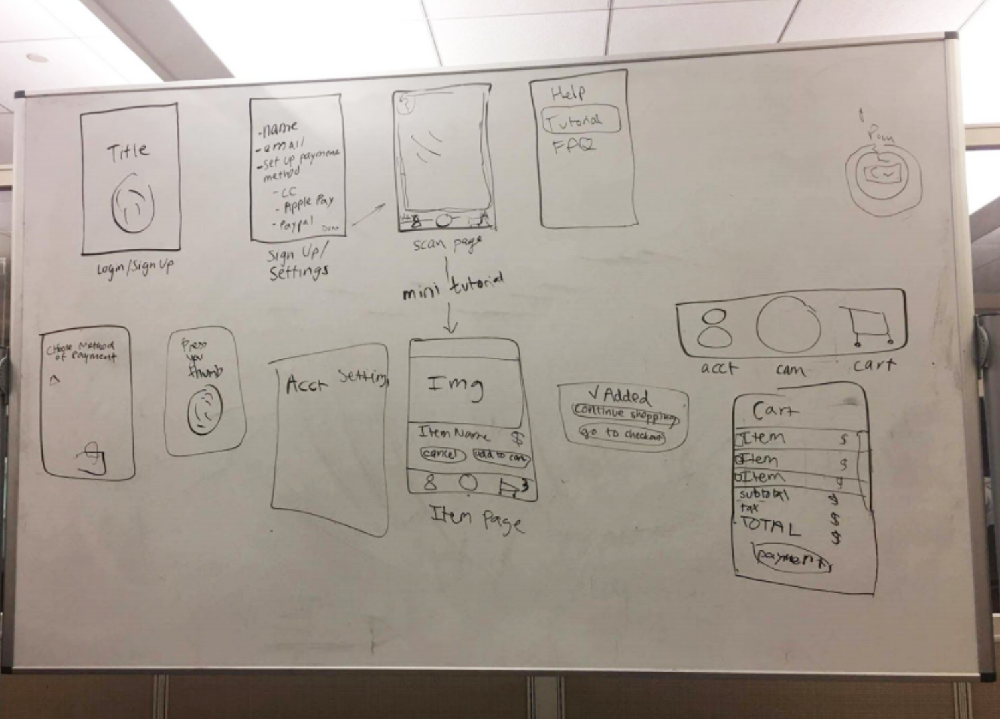 Title
Login/Sign Up
-name
-email
-Set up payment
method
-CC
-Apple Pay
-Paypal
Done
Sign Up/
Settings
?
scan page
mini tutorial
Help
Tutorial
FAQ
Choose Method
of Payment
Press
you
thumb
Acct Setting
Img
Item Name $
cancel add to cart
3
Item Page
√ Added
continue shopping
go to checkout
acct cam cart
Cart
Item $
Item $
Item $
subtotal $
tax $
TOTAL $
payment